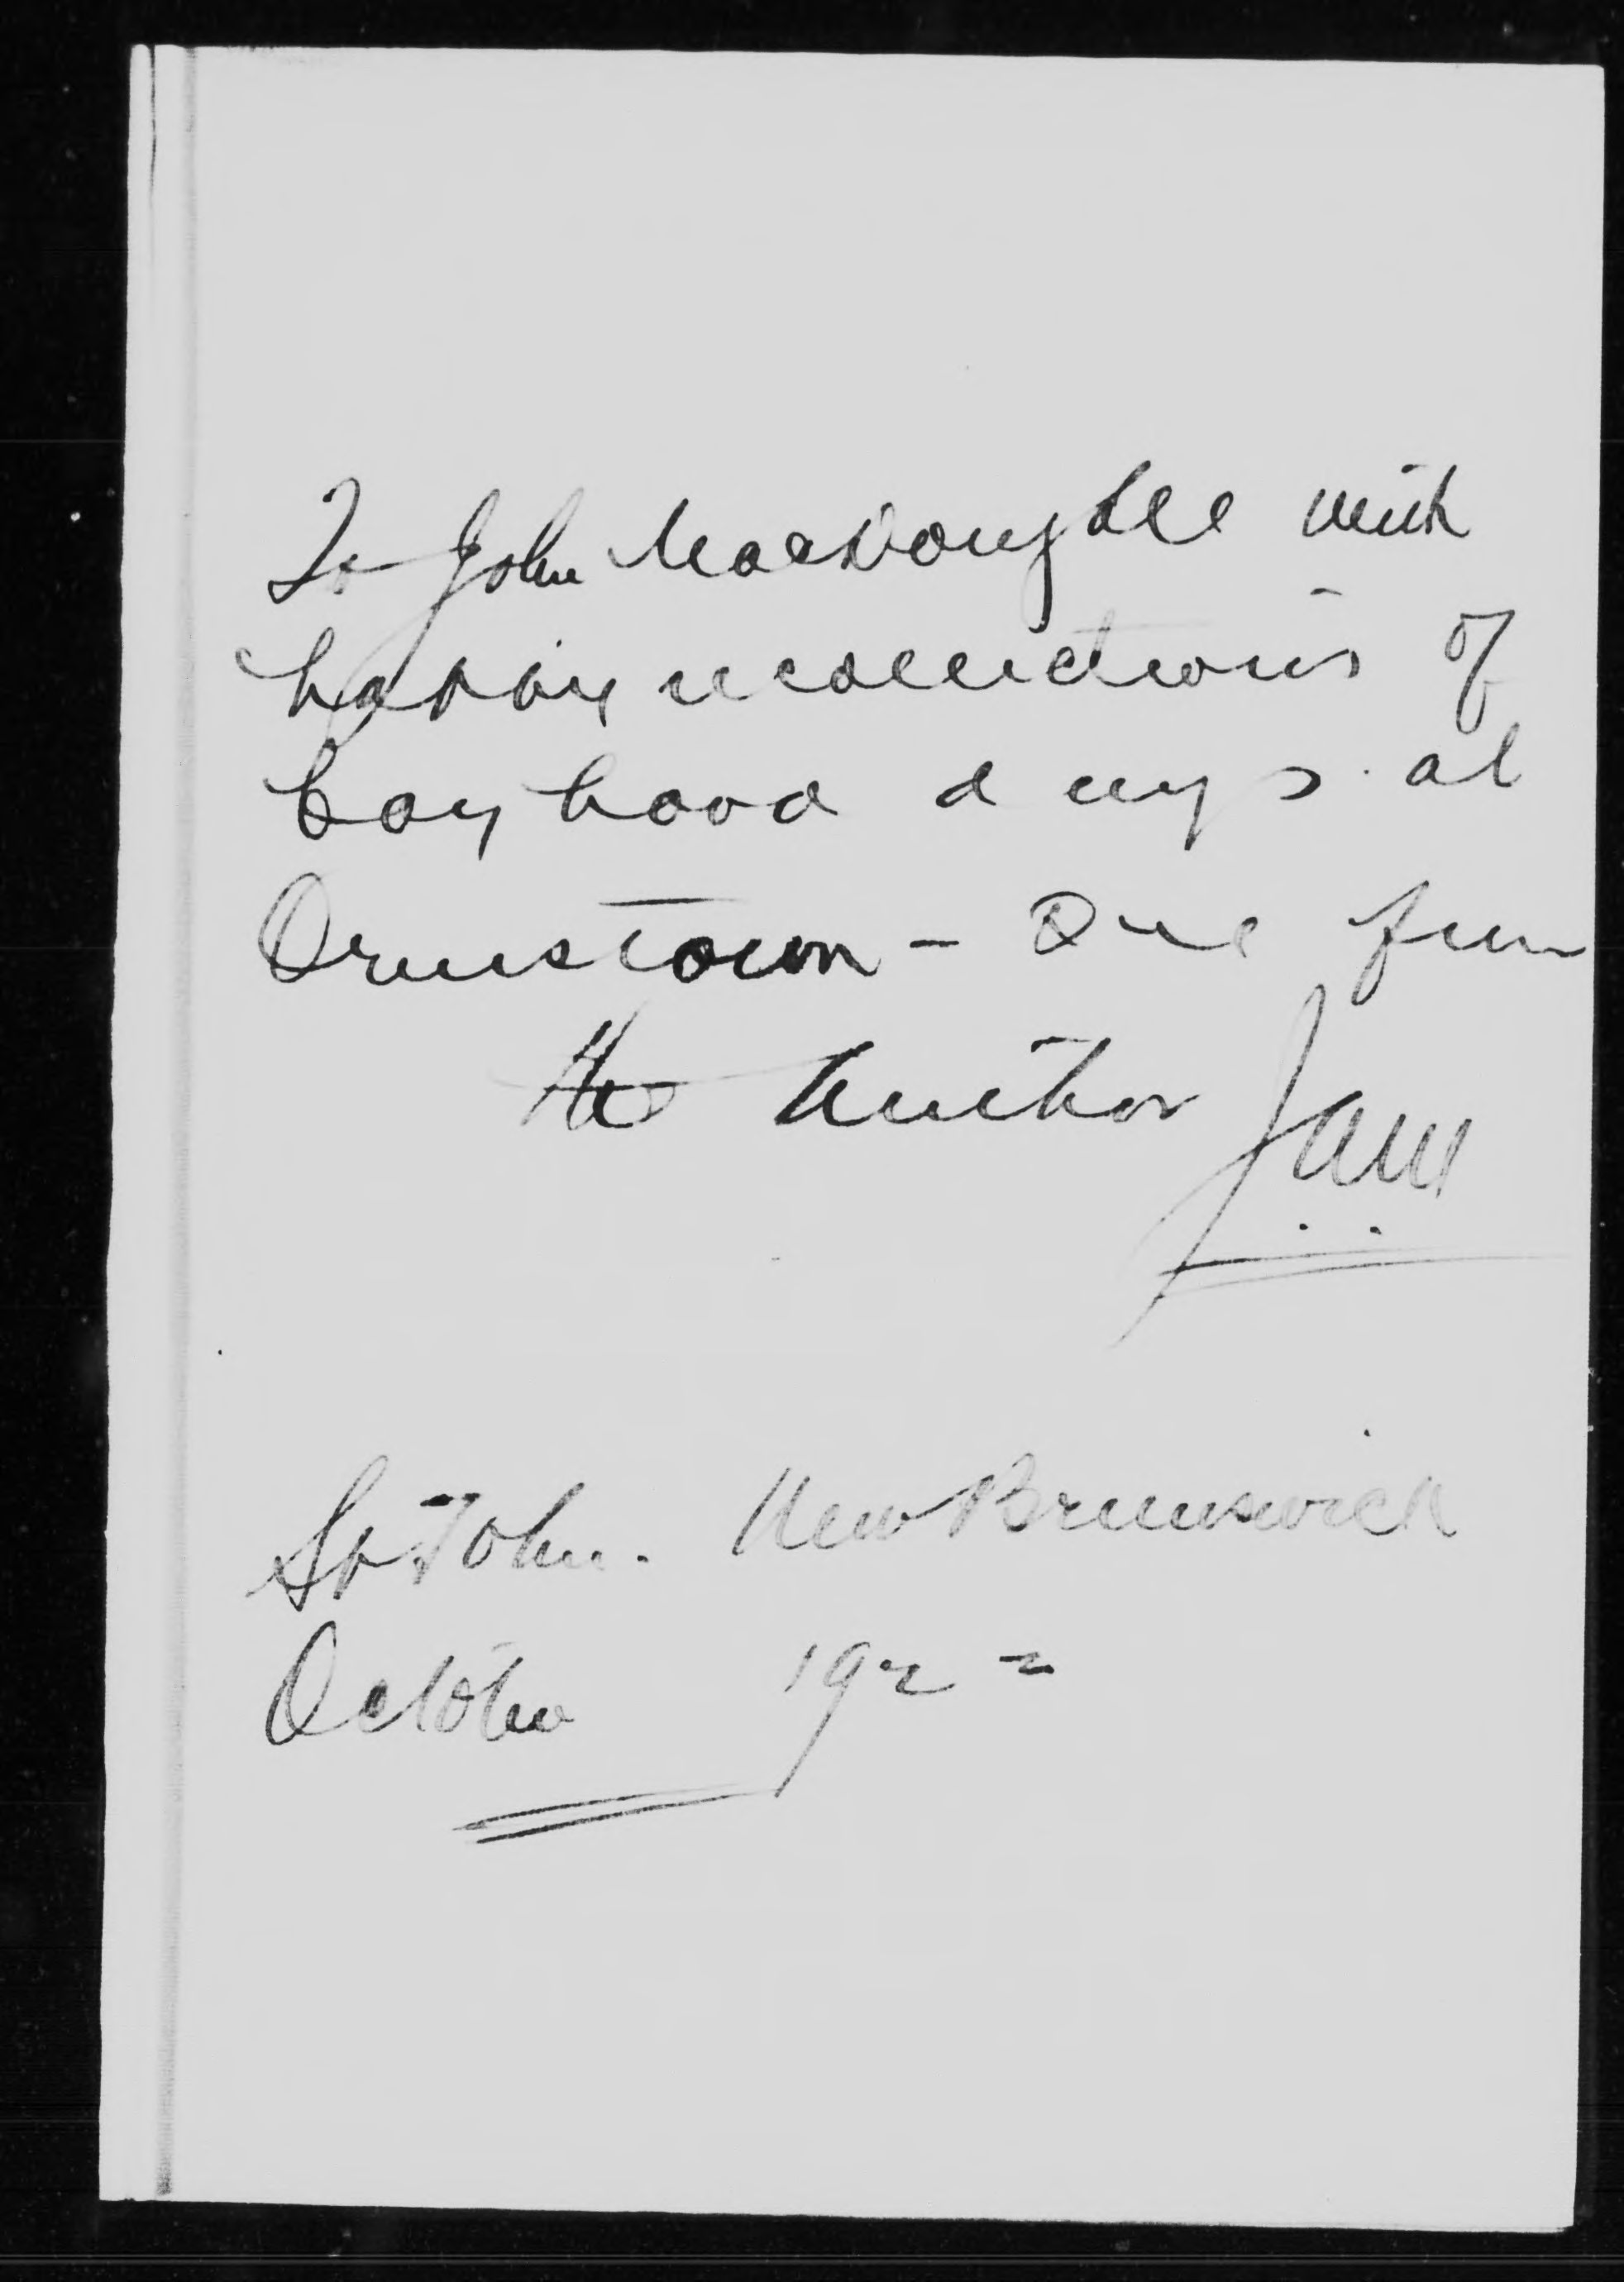 To John MacDougall with
happy recollections of
boyhood days at
Ormstown - One from
the Author
St John. New Brunswick
October 1922